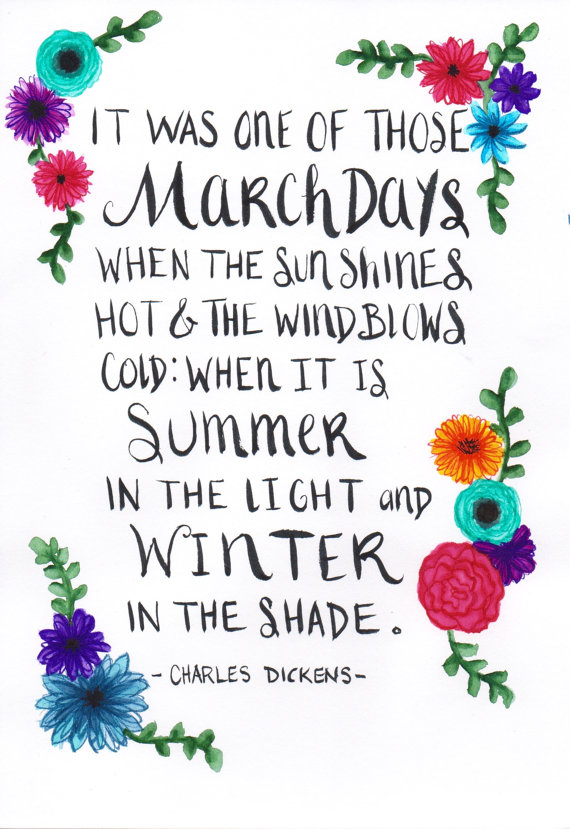 IT WAS ONE OF THOSE
March Days
WHEN THE SUN SHINES
HOT & THE WIND BLOWS
COLD: WHEN IT IS
SUMMER
IN THE LIGHT and
WINTER
IN THE SHADE.
- CHARLES DICKENS -